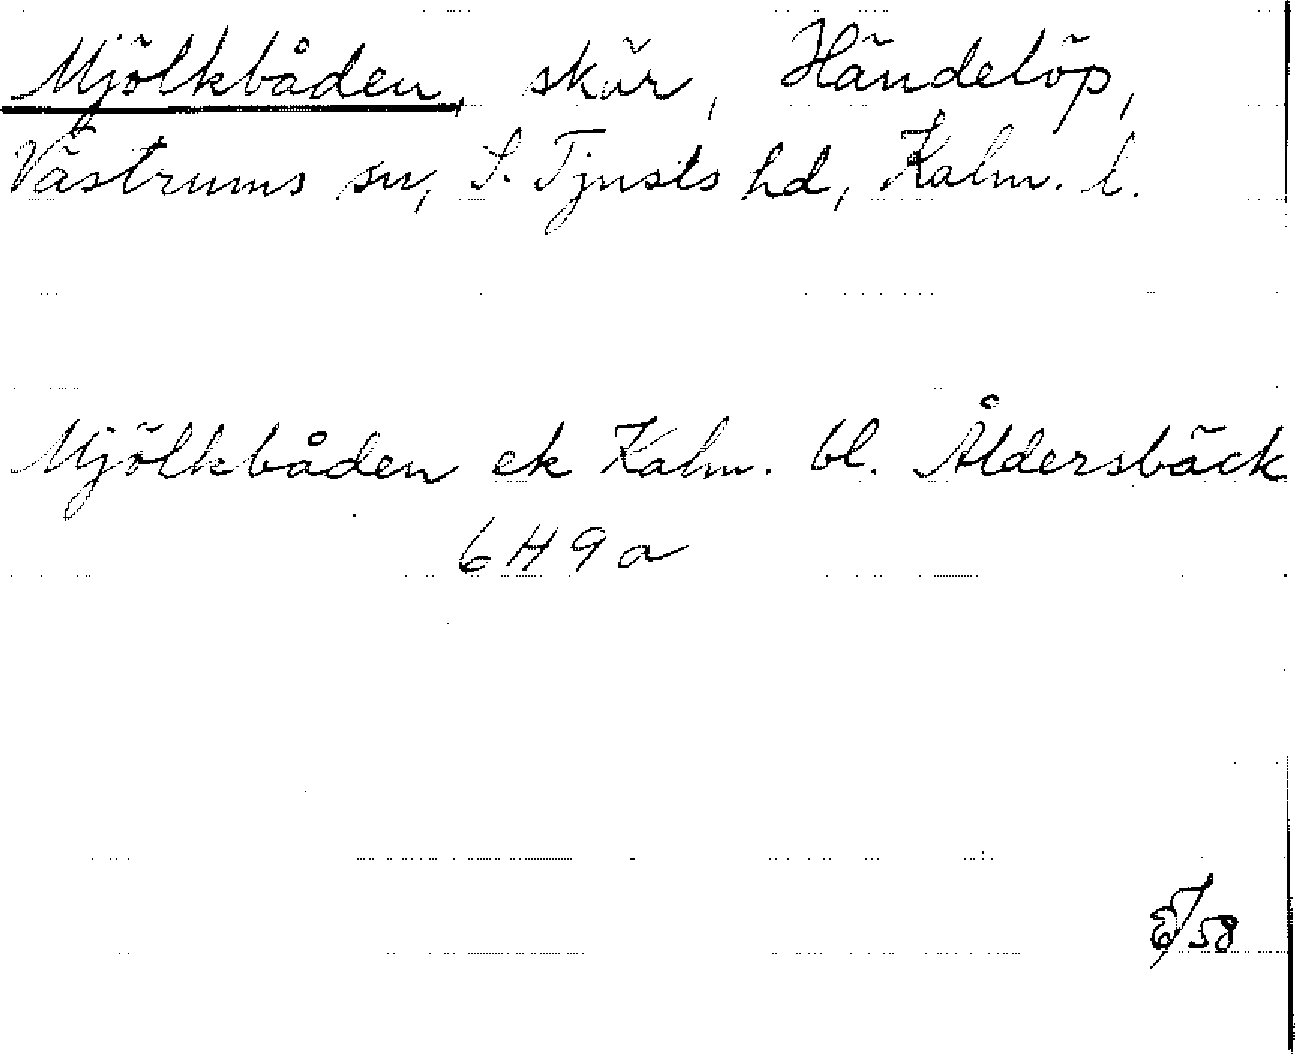 Mjölkbåden, skär, Händelöp,
Västrums sn, S. Tjusts hd, Kalm. l.
Mjölkbåden ek Kalm. bl. Åldersbäck
6H9a
58